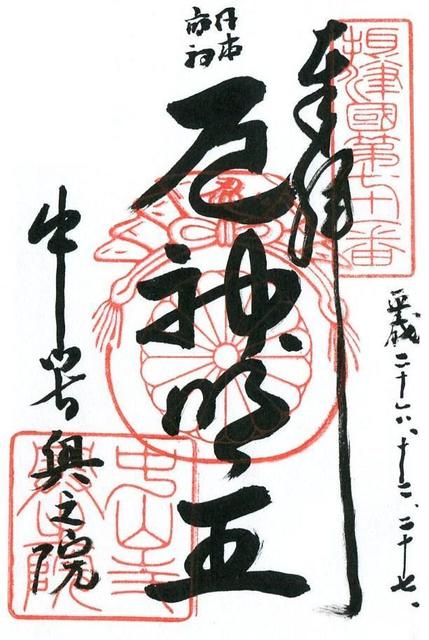 摂津國第七十一番
奉拝
平成二十六、十二、二十七、
日本
最初
厄神明王
中山寺
奥之院
中山寺
奥院